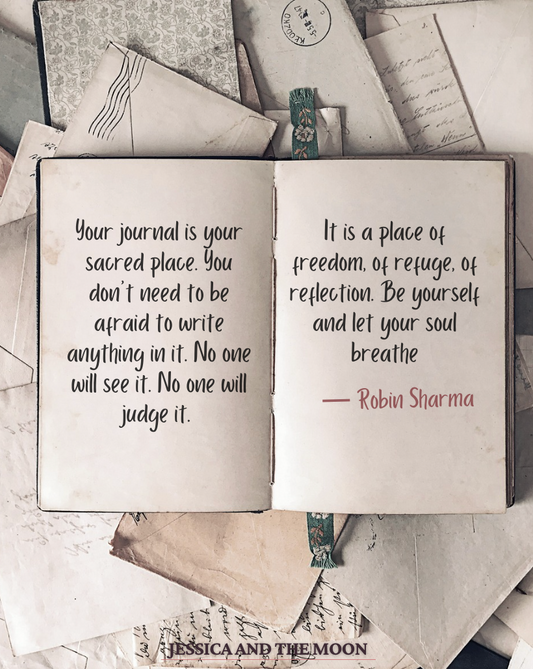 Your journal is your
sacred place. You
don't need to be
afraid to write
anything in it. No one
will see it. No one will
judge it.
It is a place of
freedom, of refuge, of
reflection. Be yourself
and let your soul
breathe
— Robin Sharma
JESSICA AND THE MOON